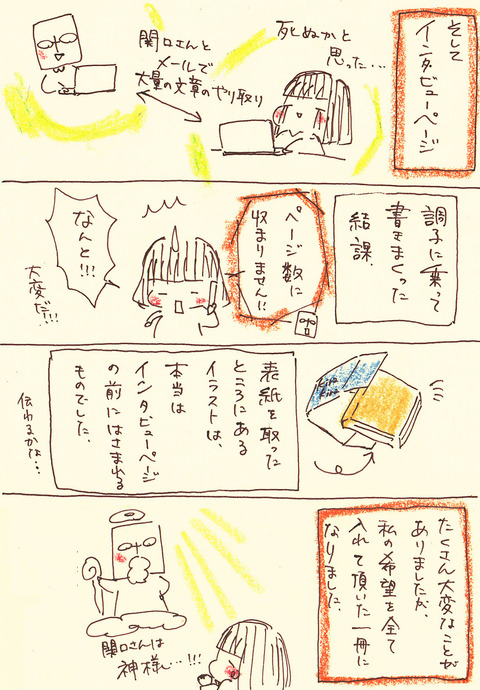 そして
インタビューページ
死ぬかと
思った…
関口さんと
メールで
大量の文章のやり取り
調子に乗って
書きまくった
結課、
ページ数に
収まりません!!
なんと!!!
大変だ!!!
表紙を取った
ところにある
イラストは、
本当は
インタビューページ
の前にはさまれる
ものでした。
伝わるかな…
たくさん大変なことが
ありましたが、
私の希望を全て
入れて頂いた一冊に
なりました。
関口さんは
神様…!!!